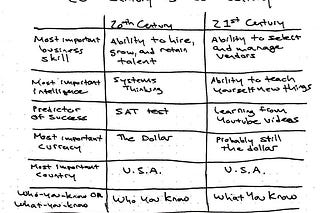 20th Century
21st Century
Most important
business
skill
Ability to hire,
grow, and retain
talent
Ability to select
and manage
vendors
Most Important
Intelligence
Systems
Thinking
Ability to teach
yourself new things
Predictor
of Success
SAT test
Learning from
Youtube videos
Most Important
Currency
The Dollar
Probably still
the dollar
Most Important
Country
U.S.A.
U.S.A.
Who-you-know OR
What-you-know
Who You Know
What You Know